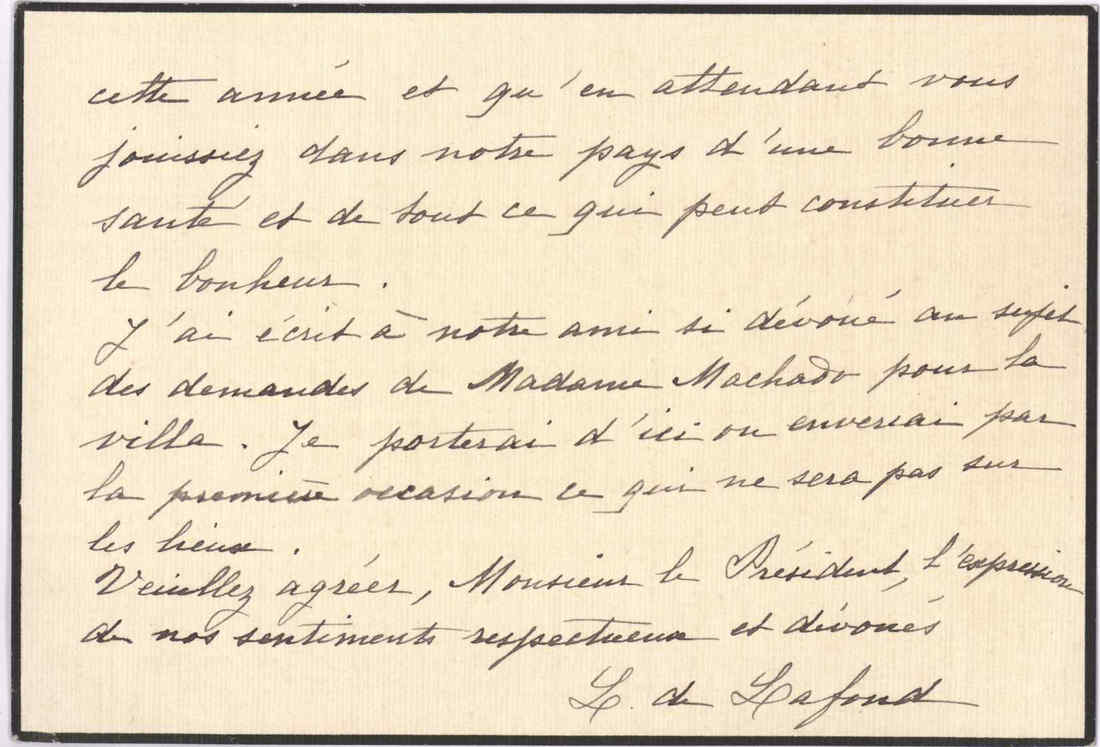 cette année et qu'en attendant vous
jouissiez dans notre pays d'une bonne
santé et de tout ce qui peut constituer
le bonheur.
J'ai écrit à notre ami si dévoué au sujet
des demandes de Madame Machado pour la
villa. Je porterai d'ici ou enverrai par
la première occasion ce qui ne sera pas sur
les lieux.
Veuillez agréer, Monsieur le Président, l'expression
de nos sentiments respectueux et dévoués
L. de Lafond